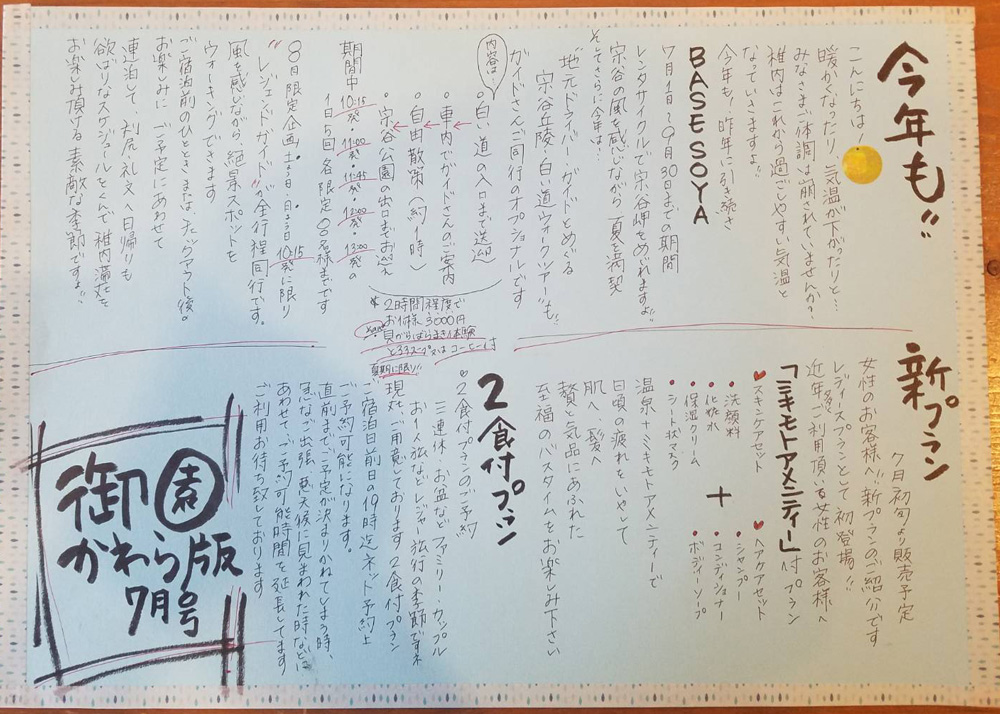 今年も!!
こんにちは!
暖かくなったり、気温が下がったりと…
みなさまご体調は崩れていませんか?
稚内はこれから過ごしやすい気温と
なっていきますよ!!
今年も!昨年に引き続き
BASE SOYA
7月1日〜9月30日までの期間
レンタサイクルで宗谷岬をめぐれますよ!!
宗谷の風を感じながら 夏を満喫
そしてさらに今年は…
地元ドライバー・ガイドとめぐる
宗谷丘陵 白い道ウォークツアーも!!
ガイドさんご同行のオプショナルです
内容は…
・白い道の入口まで送迎
・車内でガイドさんのご案内
・自由散策(約1時)
・宗谷公園の出口までお迎え
期間中 10:15発・11:00発・11:45発・12:00発・13:00発の
1日5回 各限定8名様までです
*2時間程度で
お1人様3000円
貝がらばらまき体験
とろろスープ又はコーヒー付
夏期に限り!!
8月限定企画 土よう日 日よう日 10:15発に限り
"レジェンドガイド"が全行程同行です。
風を感じながら、絶景スポットを
ウォーキングできます
ご宿泊前のひとときまたは、チェックアウト後の
お楽しみに ご予定にあわせて
連泊して、利尻・礼文へ日帰りも
欲ばりなスケジュールをくんで 稚内満喫を
お楽しみ頂ける 素敵な季節ですよ!!
新プラン
7月初旬より販売予定
女性のお客様へ!!新プランのご紹介です
レディースプランとして 初登場!!
近年多くご利用頂いている女性のお客様へ
「ミキモトアメニティー」付プラン
♥スキンケアセット
・洗顔料
・化粧水
・保湿クリーム
・シート状マスク
+
♥ヘアケアセット
・シャンプー
・コンディショナー
・ボディーソープ
温泉+ミキモトアメニティーで
日頃の疲れをいやして
肌へ 髪へ
贅と気品にあふれた
至福のバスタイムをお楽しみ下さい
2食付プラン
♡2食付プランのご予約
三連休・お盆など ファミリー・カップル
お1人旅などレジャー旅行の季節ですネ
現在、ご用意しております 2食付プラン
ご宿泊日前日の19時迄ネット予約上
ご予約可能になります。
直前までご予定が決まりかねてしまう時、
急なご出張、悪天候に見まわれた時などに
あわせて、ご予約可能時間を延長してます
ご利用お待ち致しております
御園
かわら版
7月号